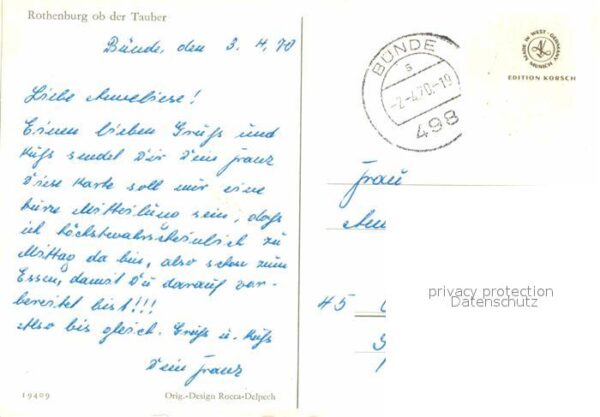 Rothenburg ob der Tauber
Bünde, den 3.4.70
Liebe Anneliese!
Einen lieben Gruß und
Kuß sendet Dir Dein Franz
Diese Karte soll nur eine
kurze Mitteilung sein, daß
ich höchstwahrscheinlich zu
Mittag da bin, also schon zum
Essen, damit Du darauf vor-
bereitet bist!!!
Also bis gleich. Gruß u. Kuß
Dein Franz
19409
Orig.-Design Rocca-Delpech
BÜNDE
s
-2-4.70.-19
498
MADE IN WEST-GERMANY
MUNICH
EDITION KORSCH
Frau
Ann
45
privacy protection
Datenschutz